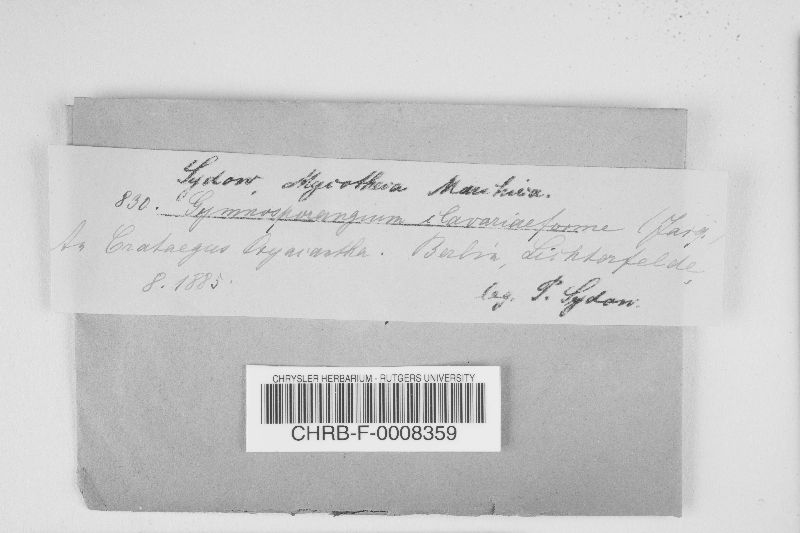 Sydow, Mycotheca Marchica.
830. Gymnosporangium clavariaeforme (Jacq.)
In Crataegus Oxyacantha. Berlin, Lichterfelde,
8. 1885.
leg. P. Sydow.
CHRYSLER HERBARIUM - RUTGERS UNIVERSITY
CHRB-F-0008359